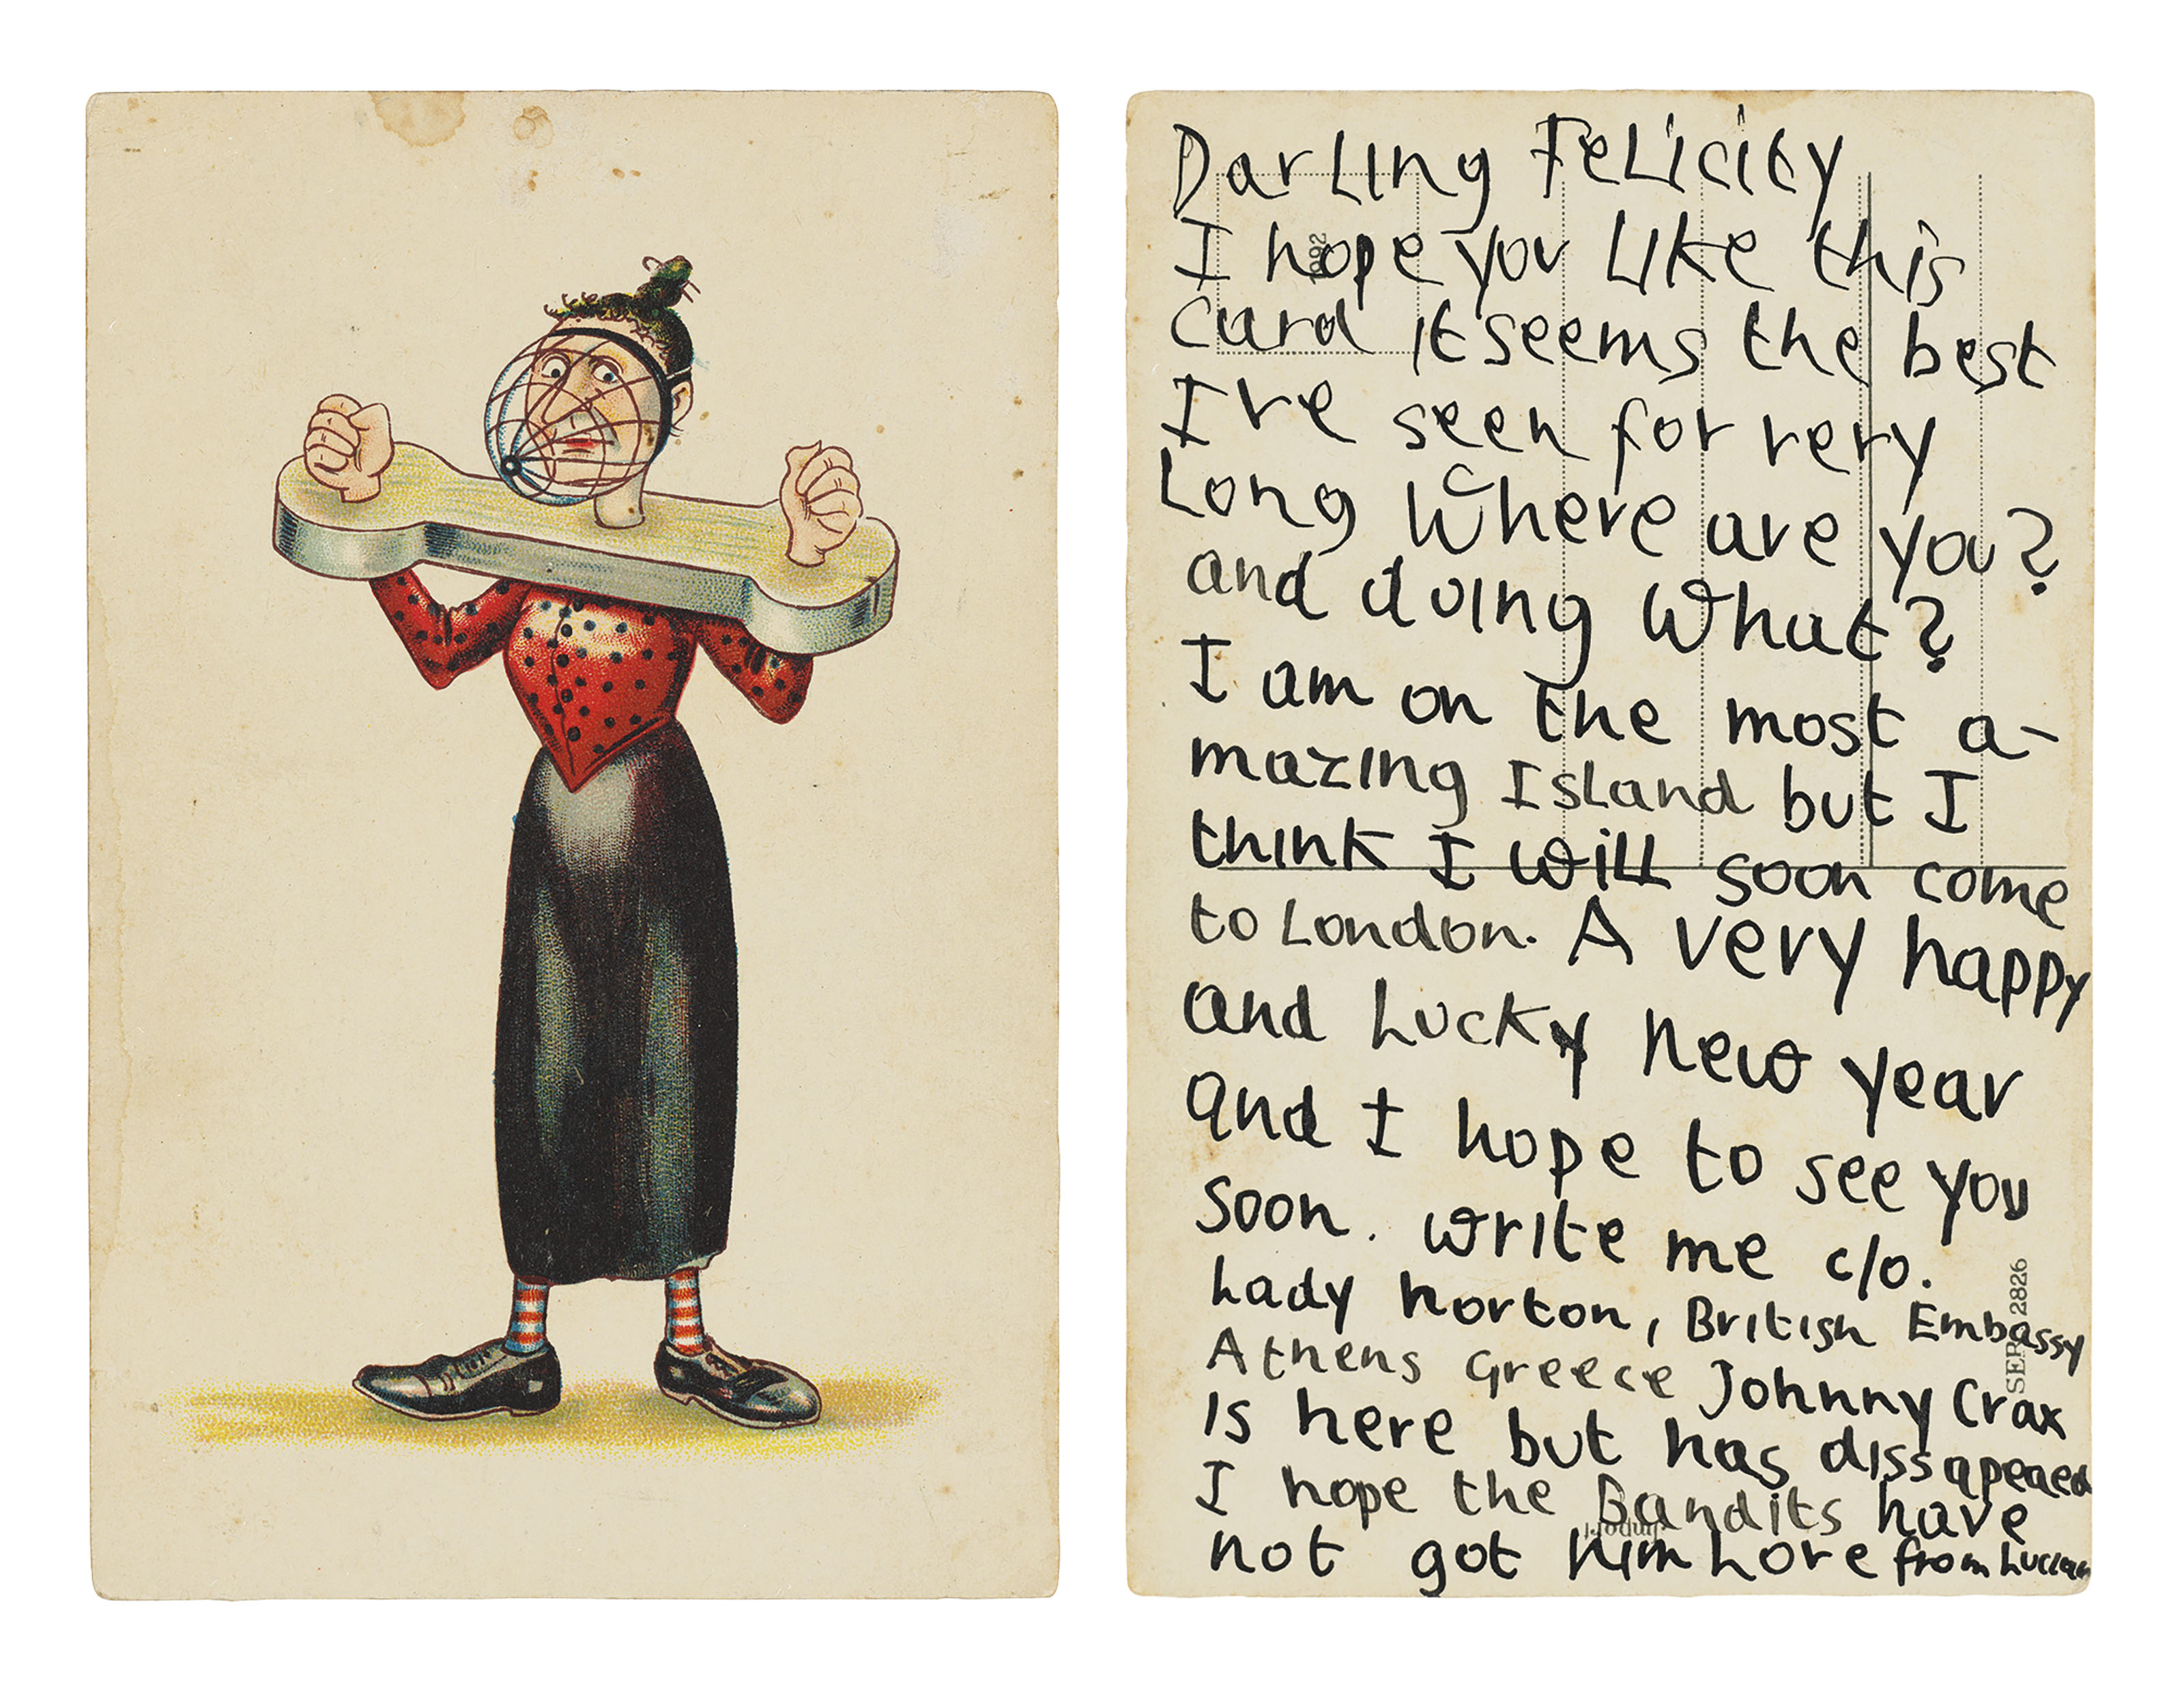 Darling Felicity
I hope you Like this
Card it seems the best
I've seen for very
Long Where are you?
and doing What?
I am on the most a-
mazing Island but I
think I will soon come
to London. A very happy
and Lucky new year
and I hope to see you
soon. write me c/o.
Lady norton, British Embassy
Athens Greece Johnny Crax
is here but has dissapeaed
I hope the Bandits have
not got him Love from Lucian
SER 2826